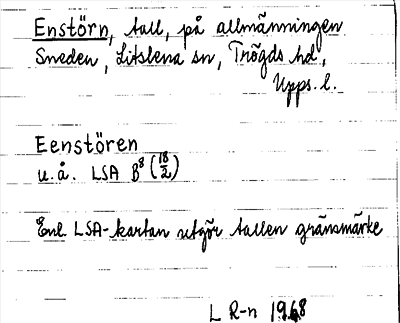 Enstörn, tall, på allmänningen
Sneden, Litslena sn, Trögds hd,
Upps. l.
Eenstören
u.å. LSA B⁸ (18/2)
Enl. LSA-kartan utgör tallen gränsmärke
L R-n 1968